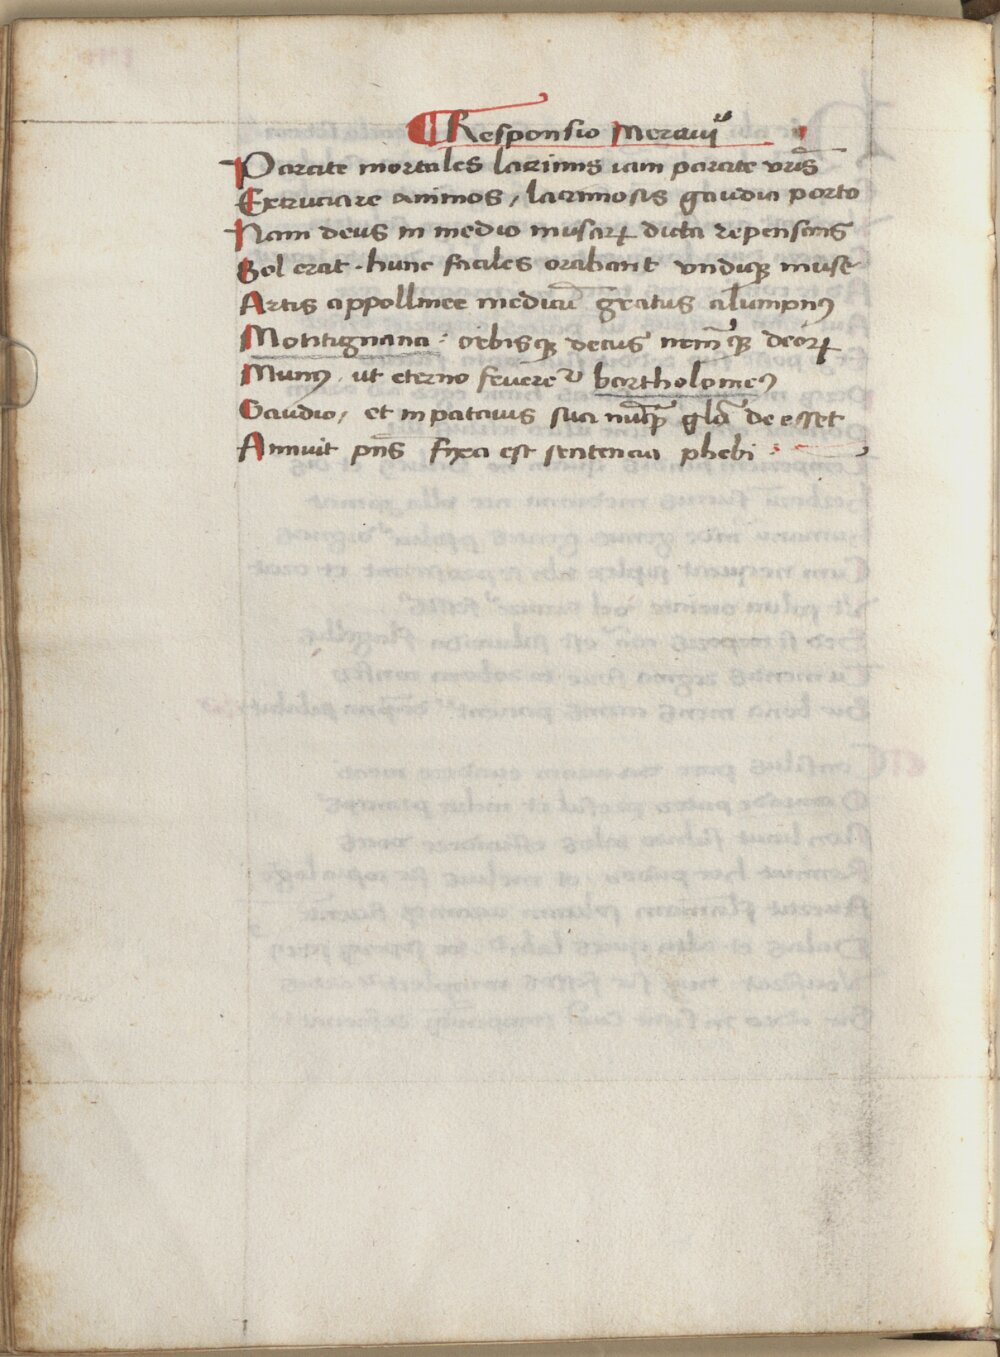 Responsio Merauii
Parcite mortales lacrimis iam parcite vrīs
Extruciare animos / lacrimosis gaudia porto
Nam deus in medio musarꝝ dicta repensans
Sol erat · hunc faciles orabant vndiqꝫ muse
Artis appollinee medicū gratus alumpnꝰ
Motitignana · orbisqꝫ decus deorꝝ
Munꝰ · ut eterno bartholomeꝰ
Gaudio / et in patauis sua nūqꝫ glā de esset
Annuit pn̄s fixa est sentencia phebi